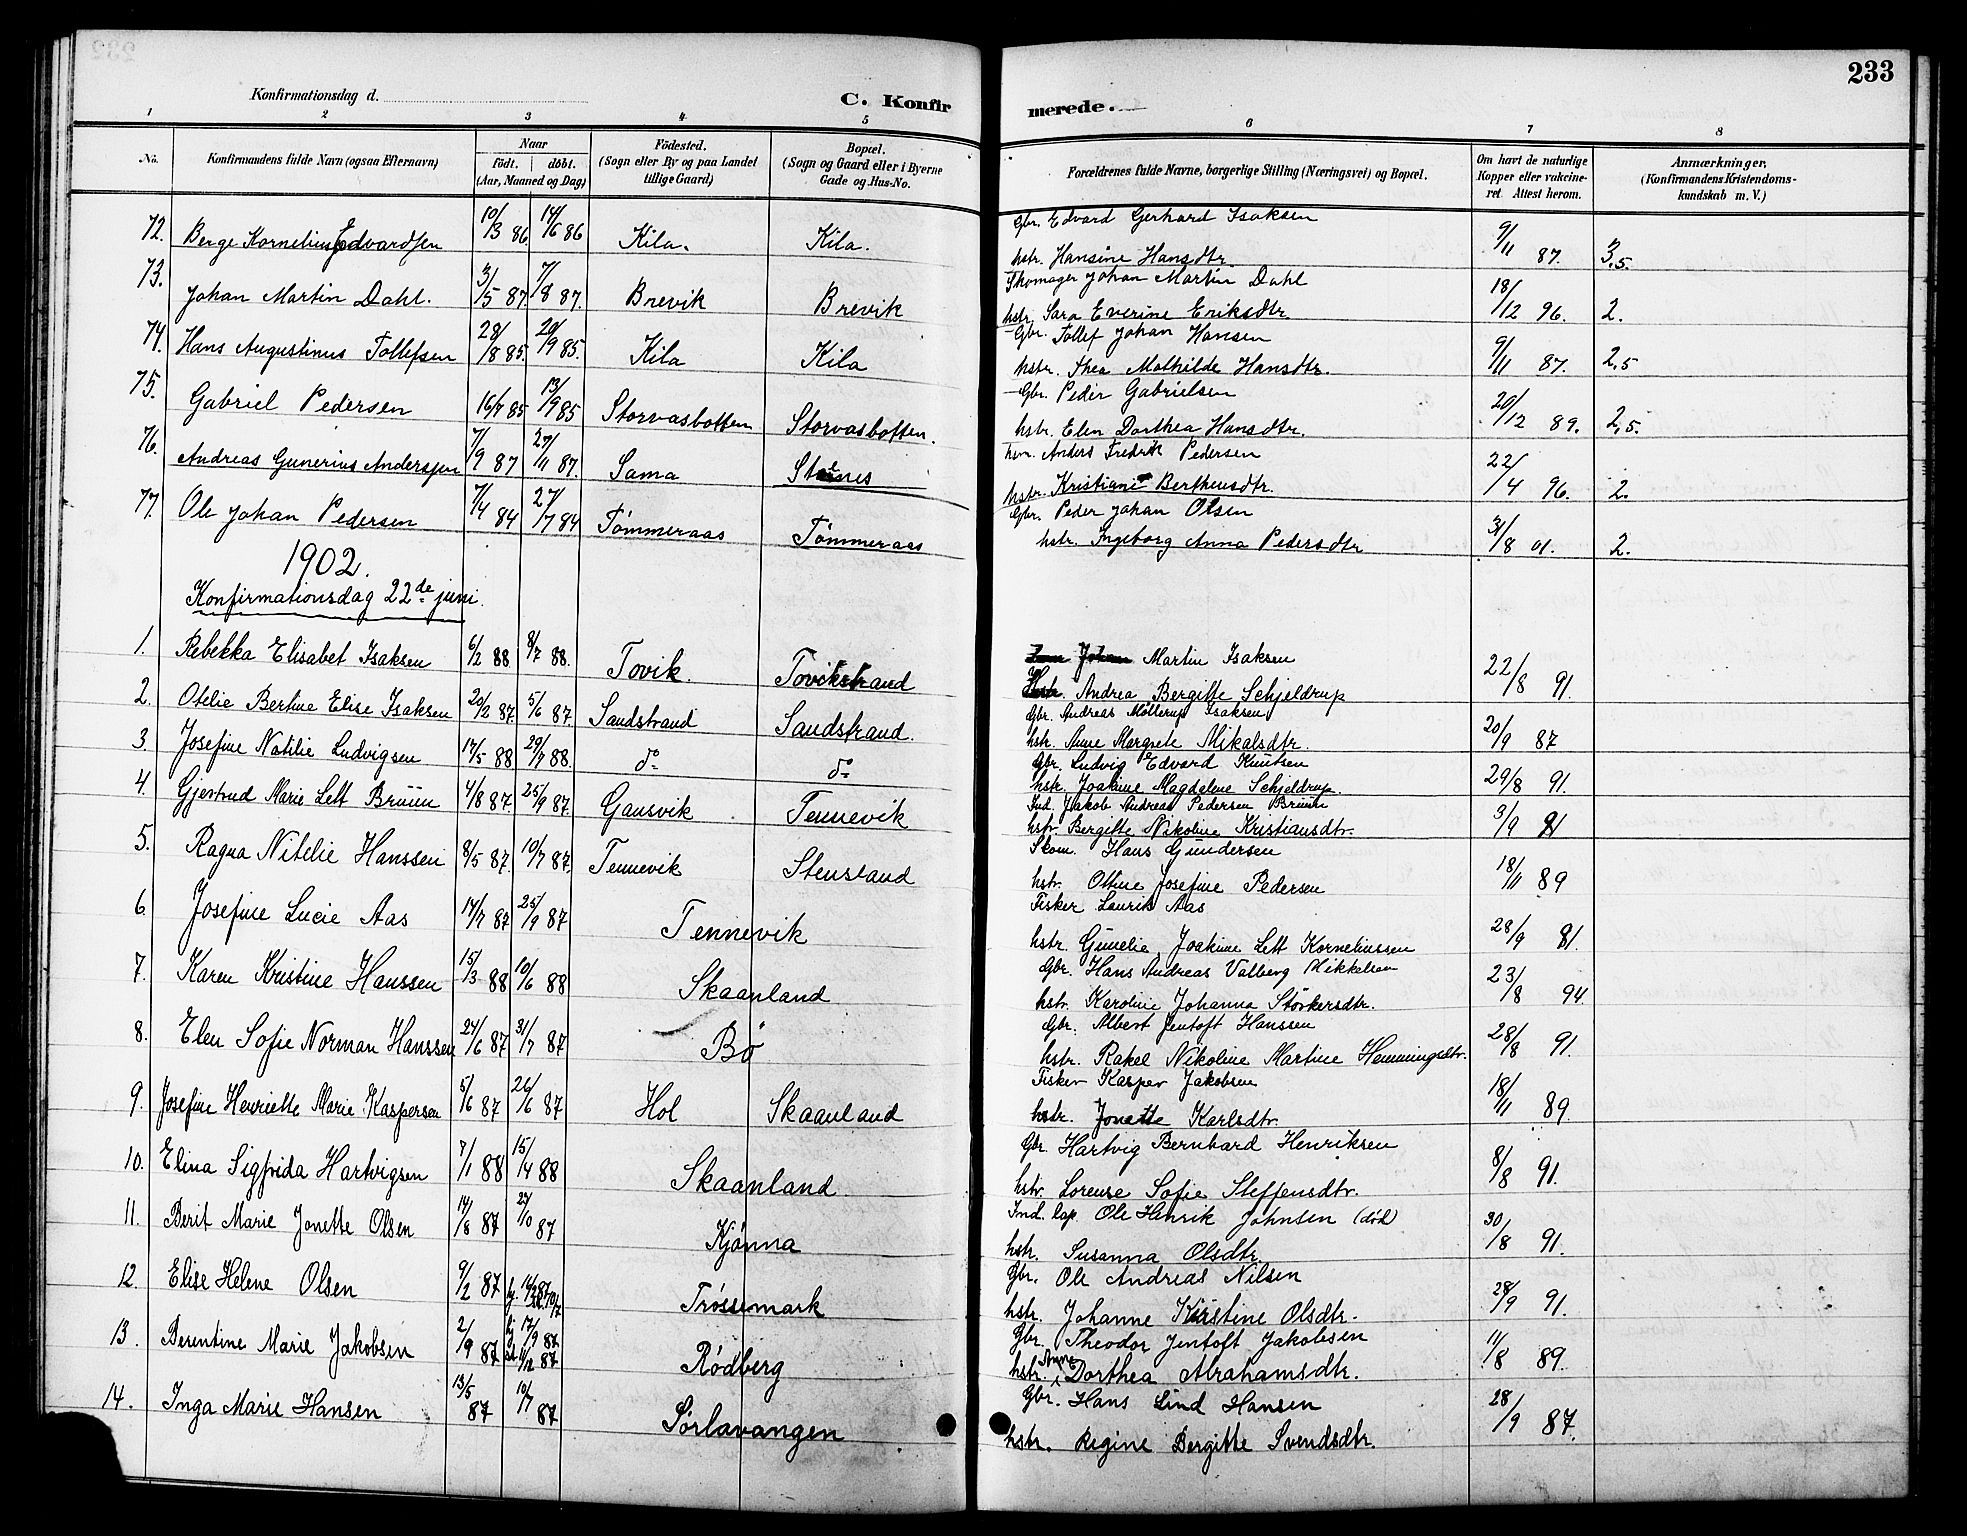 233
Konfirmationsdag d.
C. Konfirmerede.
1 2 3 4 5 6 7 8
No. Konfirmandens fulde Navn (ogsaa Efternavn) Naar født. døbt. (Aar, Maaned og Dag) Fødested. (Sogn eller By og paa Landet tillige Gaard) Bopæl. (Sogn og Gaard eller i Byerne Gade og Hus-No. Forældrenes fulde Navne, borgerlige Stilling (Næringsvei) og Bopæl. Om havt de naturlige Kopper eller vakcineret Attest herom. Anmærkninger, (Konfirmandens Kristendomskundskab m. V.)
72. Berge Kornelius Edvardsen 10/3 86 14/6 86 Kila. Kila. Gbr. Edvard Gerhard Isaksen
hstr. Hansine Hansdtr. 9/11 87. 3,5.
73. Johan Martin Dahl. 3/5 87. 7/8 87. Brevik Brevik Skomager Johan Martin Dahl
hstr. Sara Everine Eriksdtr. 18/12 96. 2.
74. Hans Augustinus Tollefsen 28/8 85. 20/9 85. Kila Kila Gbr. Tollef Johan Hansen
hstr. Thea Mathilde Hansdtr. 9/11 87. 2,5
75. Gabriel Pedersen 16/7 85 13/9 85 Storvasbotten Storvasbotten. Gbr. Peder Gabrielsen
hstr. Elen Dorthea Hansdtr. 20/12 89. 2,5.
76. Andreas Gunerius Anderssen 7/9 87 27/11 87. Sama Stunes Anders Fredrik Pedersen
hstr. Kristiane Bertheusdtr. 22/4 96. 2.
77. Ole Johan Pedersen 7/4 84 27/7 84 Tømmeraas Tømmeraas Gbr. Peder Johan Olsen
hstr. Ingeborg Anna Pedersdtr 31/8 01. 2.
1902.
Konfirmationsdag 22de juni.
1. Rebekka Elisabet Isaksen 6/2 88 8/7 88. Tovik. Tovikstrand Johan Martin Isaksen
hstr. Andrea Bergitte Schjeldrup 22/8 91.
2. Otelie Bertine Elise Isaksen 20/2 87. 5/6 87. Sandstrand Sandstrand. Gbr. Andreas Møllerup Isaksen
hstr. Anne Margrete Mikalsdtr. 20/9 87
3. Josefine Natilie Ludvigsen 17/5 88 29/7 88. do do Gbr. Ludvig Edvard Knutsen
hstr. Joakime Magdalene Schjeldrup. 29/8 91.
4. Gjertrud Marie Lett Bruun 4/8 87. 25/9 87. Gausvik Tennevik Ind. Jakob Andreas Pedersen Bruun
hstr. Bergitte Nikoline Kristiansdtr. 3/9 91
5. Ragna Nitelie Hanssen 8/5 87. 10/7 87. Tennevik Stensland Skom. Hans Gundersen
hstr. Ottine Josefine Pedersen 18/11 89
6. Josefine Lucie Aas 17/7 87 25/9 87 Tennevik Fisker Laurits Aas
hstr. Gunelie Joakime Lett Korneliussen 28/9 91.
7. Karen Kristine Hanssen 15/3 88 10/6 88 Skaanland Gbr. Hans Andreas Valberg Mikkelsen
hstr. Karoline Johanna Størkersdtr. 23/8 94
8. Elen Sofie Norman Hanssen 24/6 87 31/7 87 Bø Gbr. Albert Jentoft Hanssen
hstr. Rakel Nikoline Martine Hemmingsdtr. 28/8 91.
9. Josefine Henriette Marie Kaspersen 5/6 87 26/6 87 Hol Skaanland Fisker Kasper Jakobsen
hstr. Jonette Karlsdtr 18/11 89.
10. Elina Sigfrida Hartvigsen 7/1 88 15/4 88 Skaanland. Gbr. Hartvig Bernhard Henriksen
hstr. Lorense Sofie Steffensdtr. 8/8 91.
11. Berit Marie Jonette Olsen 14/8 87 23/10 87 Kjønna Ind. lap. Ole Henrik Johnsen (død)
hstr. Susanna Olsdtr 30/8 91.
12. Elise Helene Olsen 9/2 87 Trøssemark Gbr. Ole Andreas Nilsen
hstr. Johanne Kristine Olsdtr. 28/9 91.
13. Berentine Marie Jakobsen 2/9 87 hj 17/9 87 st 11/12 87 Rødberg Gbr. Theodor Jentoft Jakobsen
hstr. Anne Dorthea Abrahamsdtr. 11/8 89.
14. Inga Marie Hansen 13/5 87 10/7 87 Sørlavangen Gbr. Hans Lind Hansen
hstr. Regine Bergitte Svendsdtr. 28/9 87.